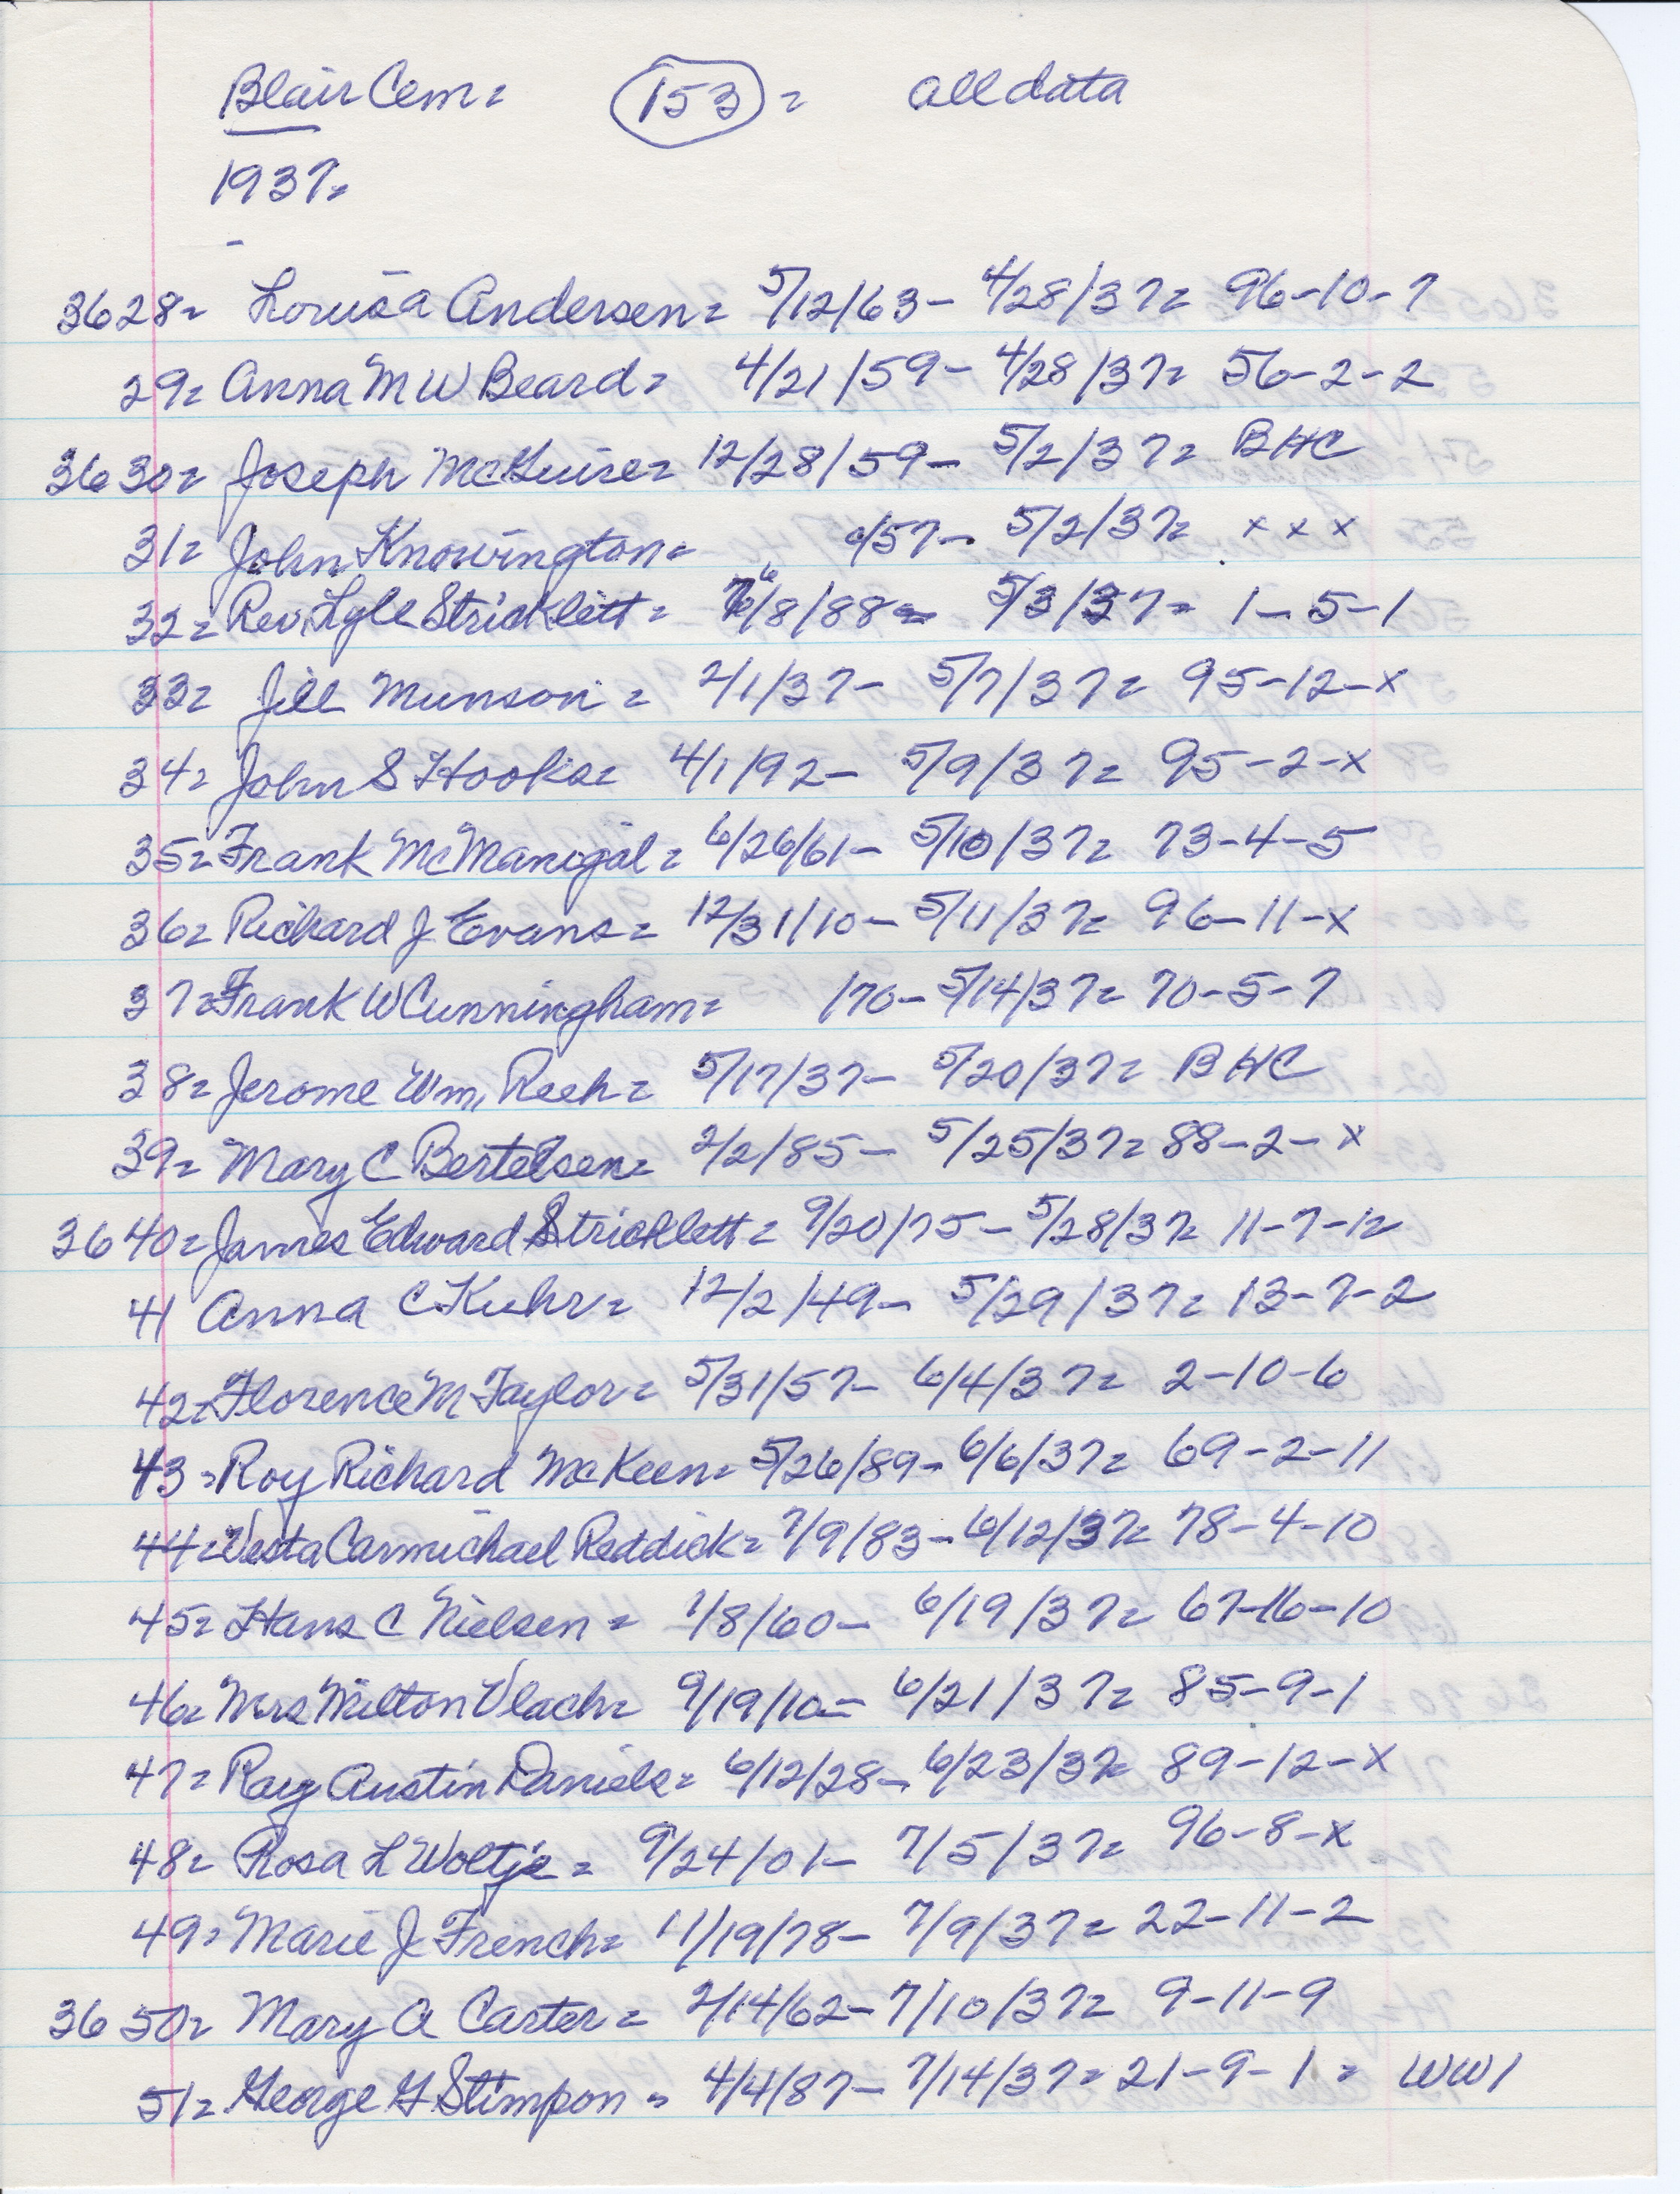 Blair Cem= 153= all data
1937=
-
3628= Louisa Andersen= 5/12/63- 4/28/37= 96-10-7
29= Anna M W Beard= 4/21/59- 4/28/37= 56-2-2
3630= Joseph McGuire= 12/28/59- 5/2/37= BHC
31= John Knowington= /57- 5/2/37= x x x
32= Rev. Lyle Stricklett= 6/8/88= 5/3/37= 1-5-1
33= Jill Munson= 2/1/37- 5/7/37= 95-12-x
34= John S Hooks= 4/1/92- 5/9/37= 95-2-x
35= Frank McManigal= 6/26/61- 5/10/37= 73-4-5
36= Richard J Evans= 12/31/10- 5/11/37= 96-11-x
37= Frank W Cunningham= /70- 5/14/37= 70-5-7
38= Jerome Wm, Reeh= 5/17/37- 5/20/37= BHC
39= Mary C Bertelsen= 2/2/85- 5/25/37= 88-2-x
3640= James Edward Stricklett= 9/20/75- 5/28/37= 11-7-12
41 Anna C Kuhr= 12/2/49- 5/29/37= 13-7-2
42= Florence M Taylor= 5/31/57- 6/4/37= 2-10-6
43= Roy Richard McKeen= 5/26/89- 6/6/37= 69-2-11
44= Vesta Carmichael Reddick= 7/9/83- 6/12/37= 78-4-10
45= Hans C Nielsen= 1/8/60- 6/19/37= 67-16-10
46= Mrs Milton Vlach= 9/19/10= 6/21/37= 85-9-1
47= Ray Austin Daniels= 6/12/28- 6/23/37= 89-12-x
48= Rosa L Woltje= 9/24/01- 7/5/37= 96-8-x
49= Marie J French= 11/19/78- 7/9/37= 22-11-2
3650= Mary A Carter= 2/14/62- 7/10/37= 9-11-9
51= George G Stimpon= 4/4/87- 7/14/37= 21-9-1= WW1